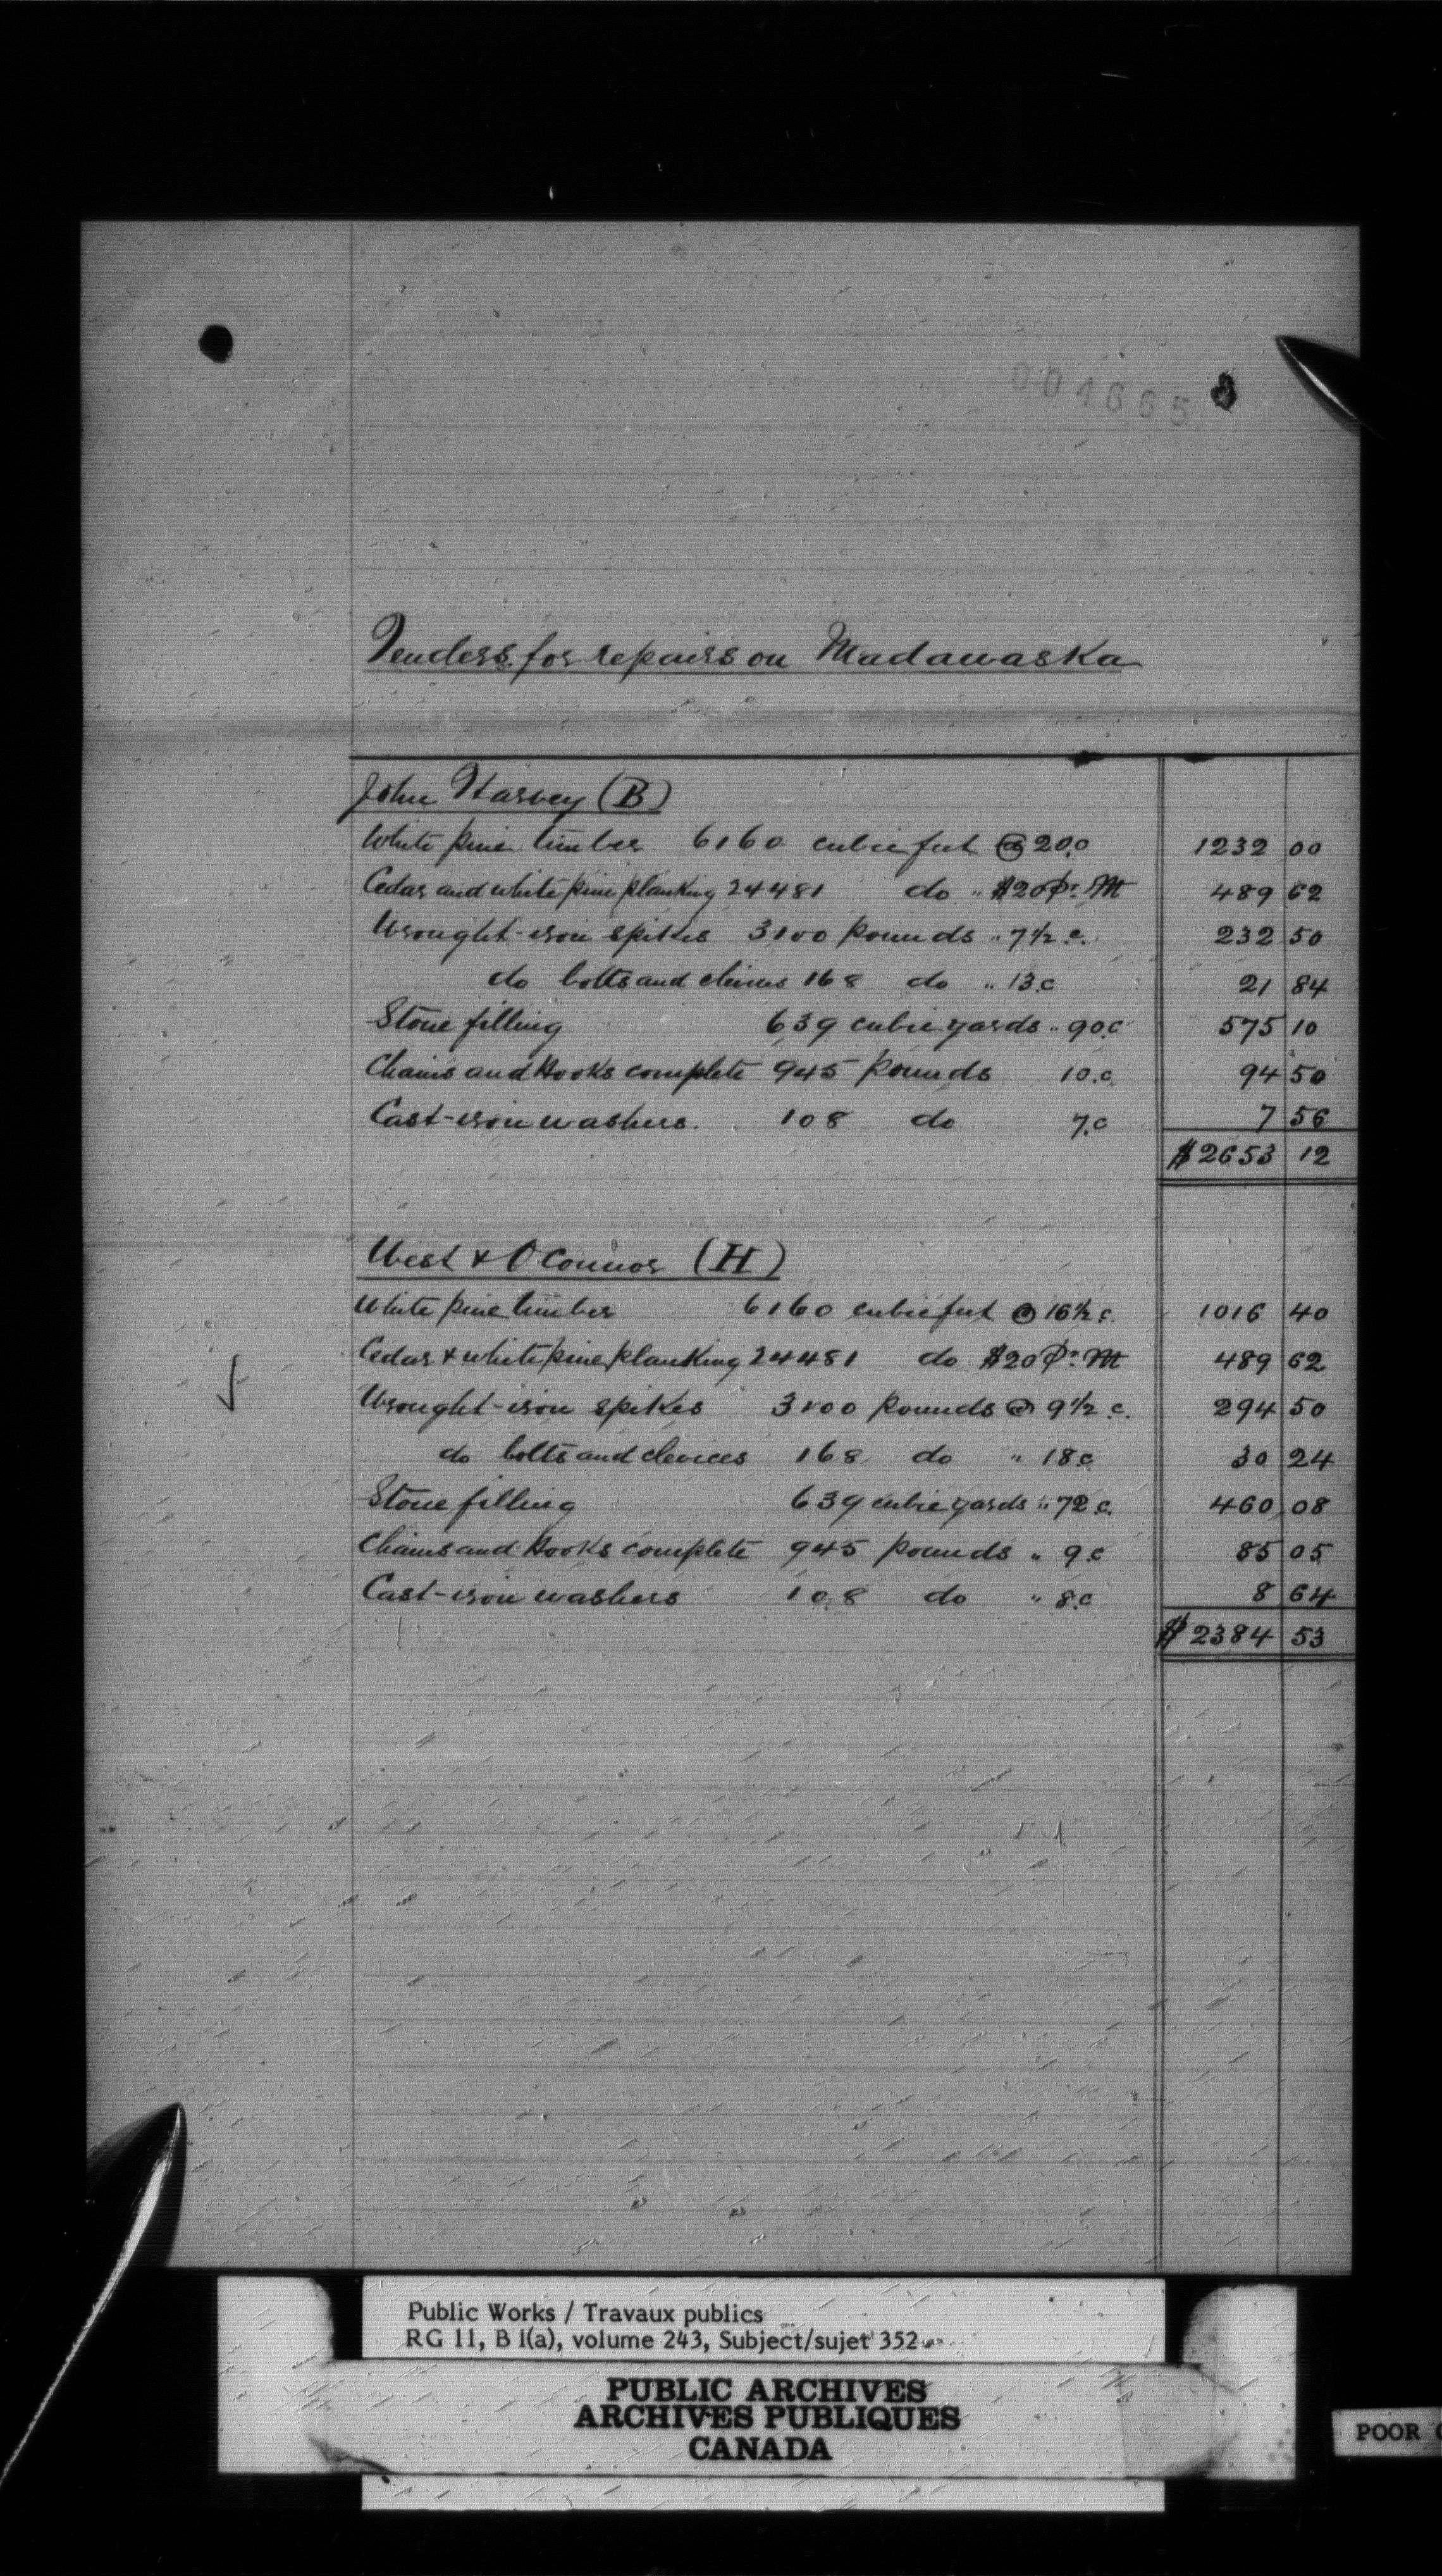 004665
Tenders for repairs on Madawaska
John Harvey (B)
White pine timber 6160 cubic feet @ 20.c 1232 00
Cedar and white pine planking 24481 do " $20 Pr. M 489 62
Wrought-iron spikes 3100 pounds " 7½.c. 232 50
do bolts and clevices 168 do " 13.c 21 84
Stone filling 639 cubic yards " 90.c 575 10
Chains and Hooks complete 945 pounds 10.c. 94 50
Cast-iron washers. 108 do 7.c 7 56
$2653 12
West & OConnor (H)
White pine timber 6160 cubic feet @ 16½ c. 1016 40
Cedar & white pine planking 24481 do $20 Pr. M 489 62
Wrought-iron spikes 3100 pounds @ 9½.c. 294 50
do bolts and clevices 168 do " 18.c 30 24
Stone filling 639 cubic yards " 72.c. 460 08
Chains and Hooks complete 945 pounds " 9.c 85 05
Cast-iron washers 108 do " 8.c 8 64
$2384 53
Public Works / Travaux publics
RG 11, B 1(a), volume 243, Subject/sujet 352
PUBLIC ARCHIVES
ARCHIVES PUBLIQUES
CANADA
POOR